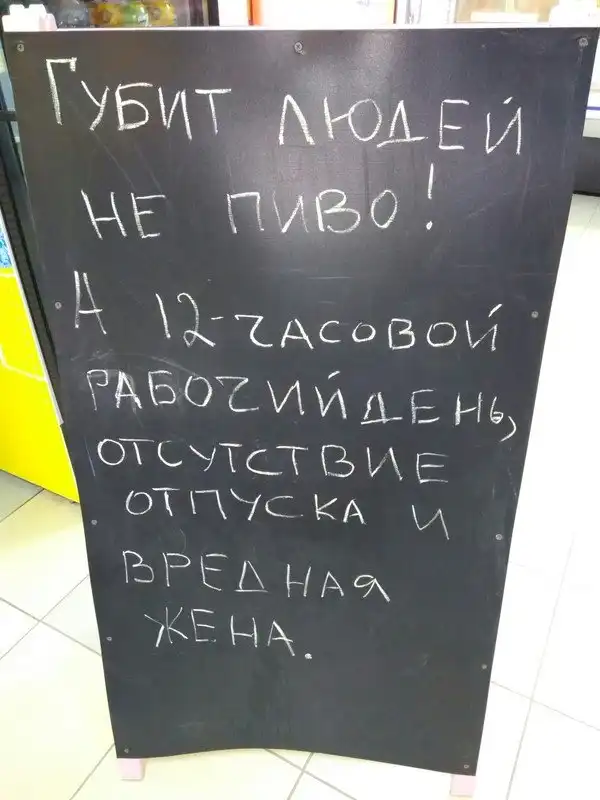 ГУБИТ ЛЮДЕЙ
НЕ ПИВО!
А 12-ЧАСОВОЙ
РАБОЧИЙ ДЕНЬ,
ОТСУТСТВИЕ
ОТПУСКА И
ВРЕДНАЯ
ЖЕНА.